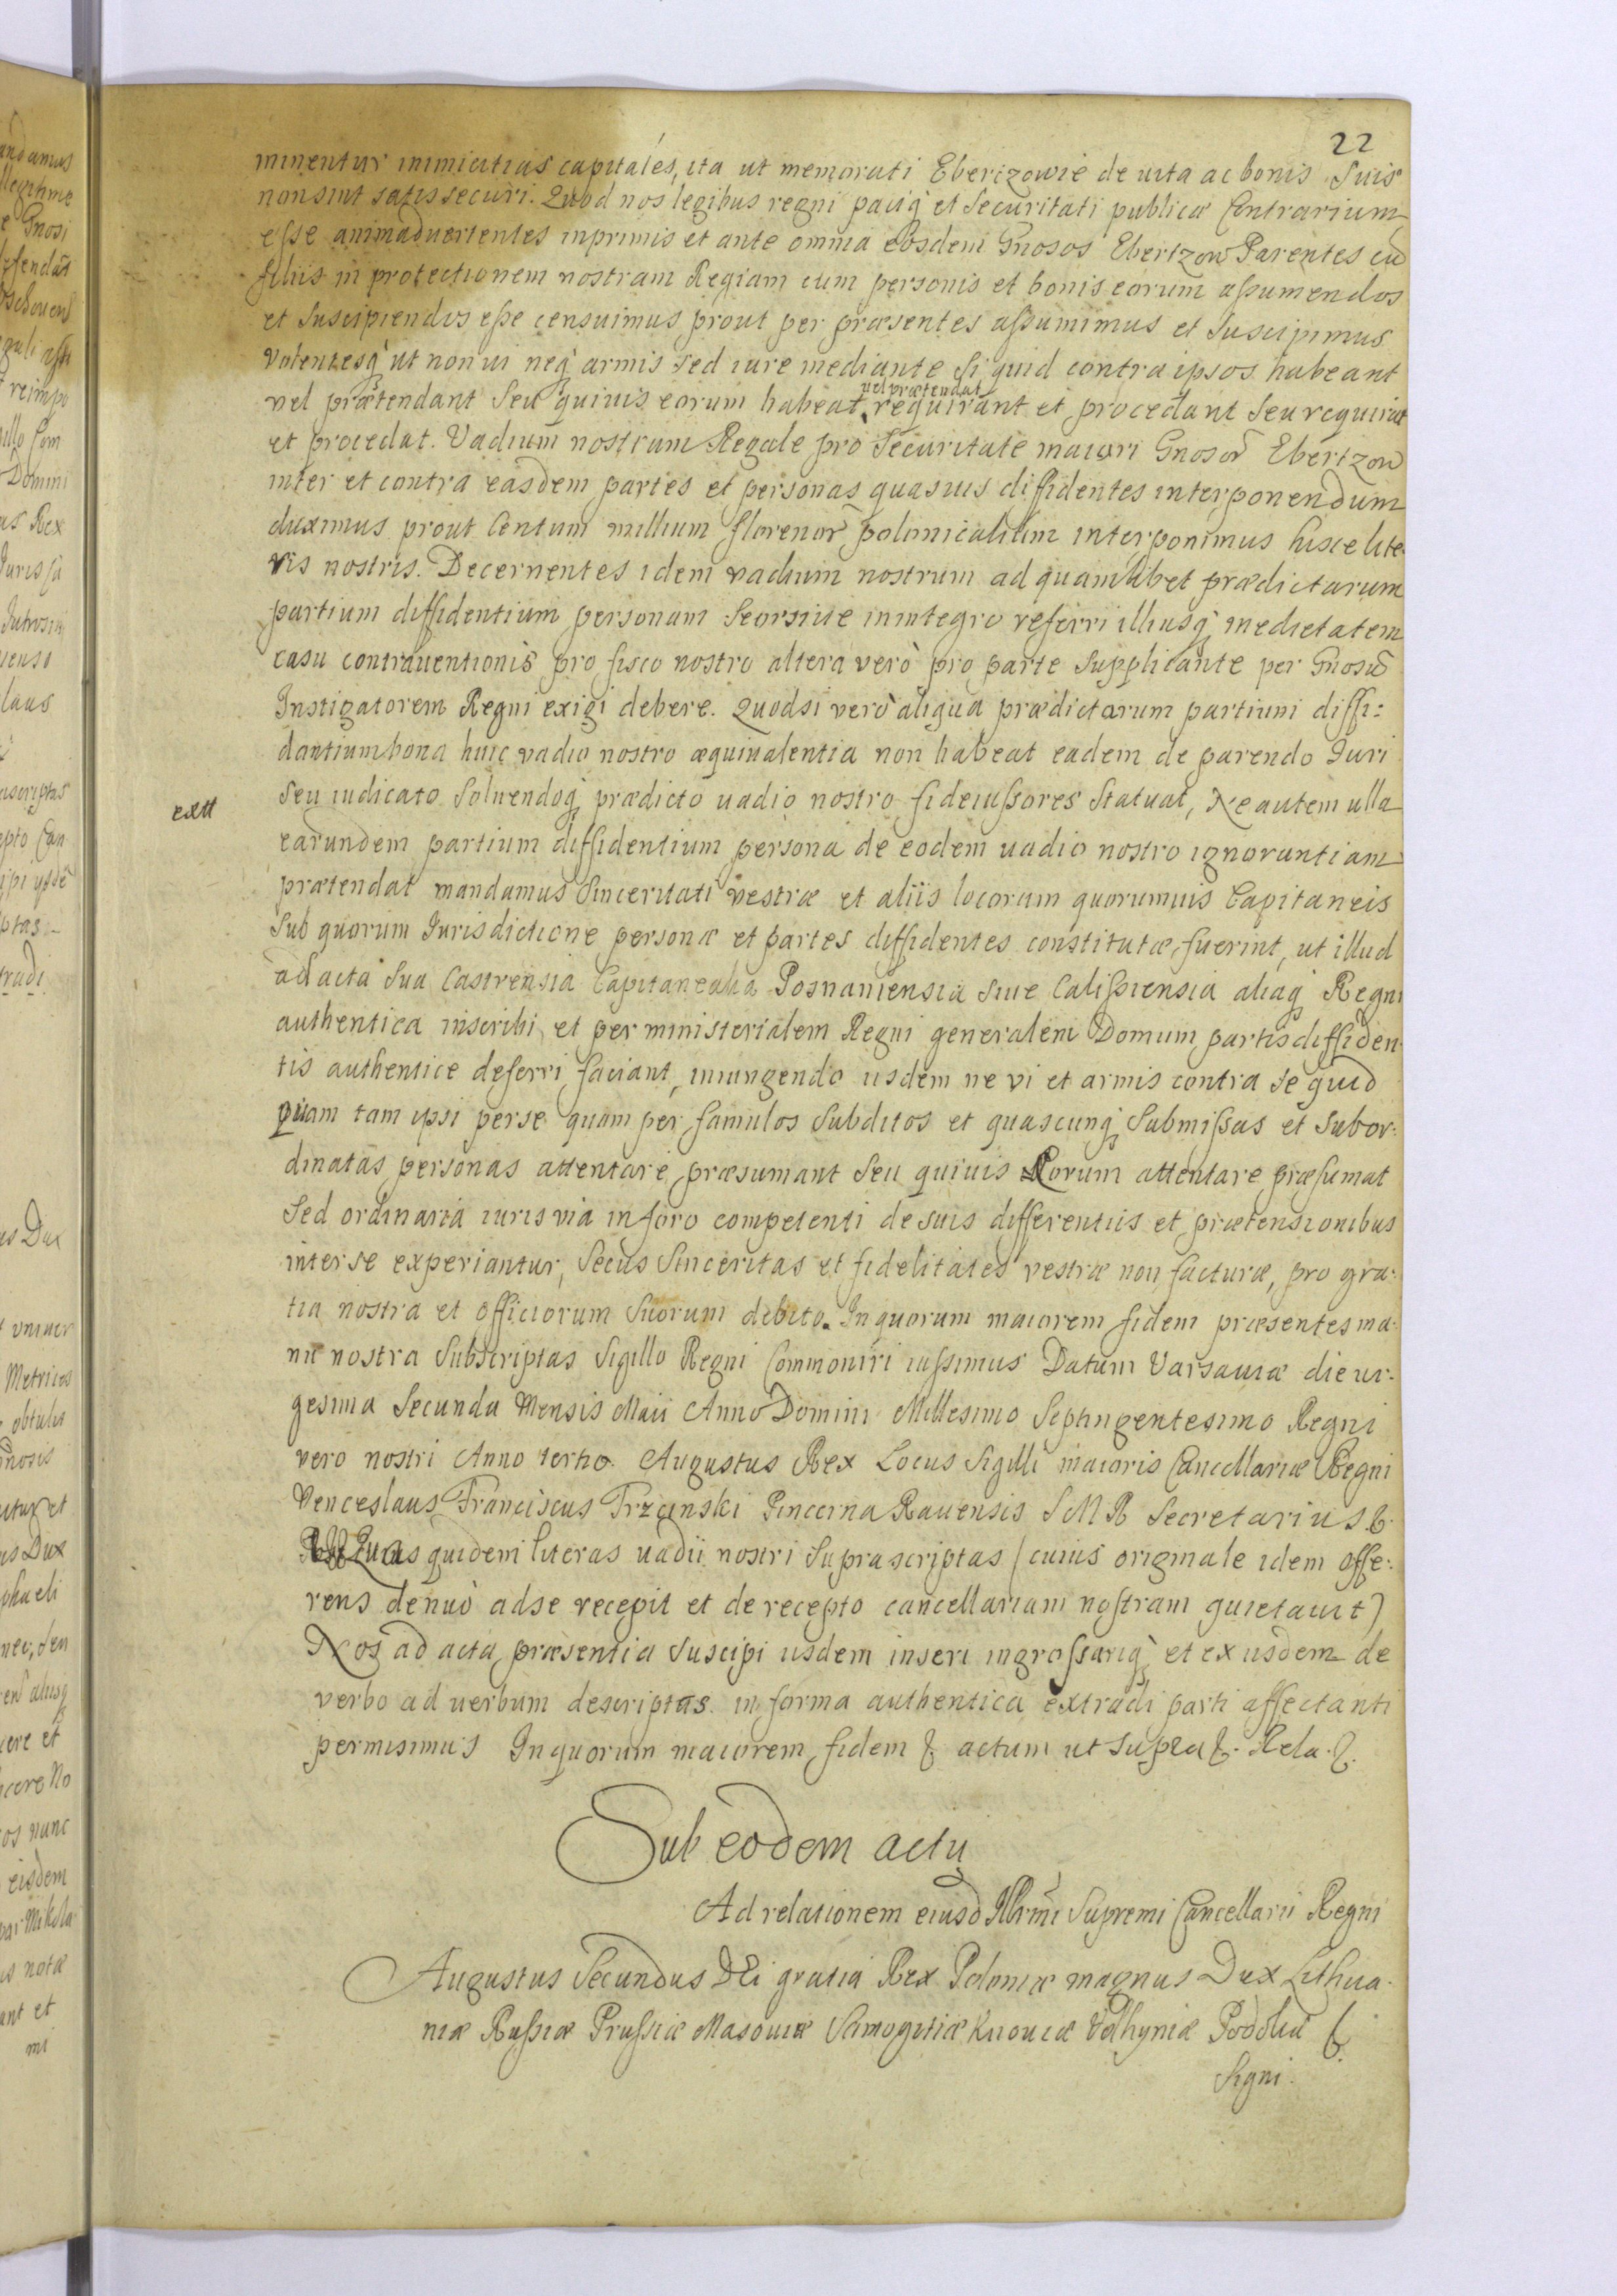 22
minentur inimicitias capitales, ita ut memorati Ebertzowie de uita ac bonis Suis
non sint satis securi. Quod nos legibus regni paciq; et Securitati publicæ Contrarium
esse animaduertentes inprimis et ante omnia eosdem Gnosos Ebertzow Parentes cũ
filiis in protectionem nostram Regiam cum personis et bonis eorum assumendos
et Suscipiendos esse censuimus prout per præsentes assumimus et Suscipimus
volentesq; ut non ui neq; armis sed iure mediante Si quid contra ipsos habeant
vel prætendant Seu quiuis eorum habeat uel prætendat requirant et procedant Seu requirat
et procedat. Vadium nostrum Regale pro Securitate maiori Gnosor̃ Ebertzow
inter et contra easdem partes et personas quasuis diffidentes interponendum
duximus prout Centum millium florenor̃ polonicalium interponimus hisce lite-
ris nostris. Decernentes idem vadium nostrum ad quamlibet prædictarum
partium diffidentium personam Seorsiue in integro referri illiusq; medietatem
casu contrauentionis pro fisco nostro altera verò pro parte Supplicante per Gnosũ
Instigatorem Regni exigi debere. Quodsi verò aliqua prædictarum partium diffi:
dantium bona huic vadio nostro æquiualentia non habeat eadem de parendo Juri
extt
Seu iudicato Soluendoq; prædicto uadio nostro fideiussores Statuat, Ne autem ulla
earundem partium diffidentium persona de eodem uadio nostro ignorantiam
prætendat mandamus Sinceritati vestræ et aliis locorum quorumuis Capitaneis
Sub quorum Jurisdictione personæ et partes diffidentes constitutæ fuerint, ut illud
ad acta Sua Castrensia Capitanealia Posnaniensia Siue Calissiensia aliaq; Regni
authentica inscribi et per ministerialem Regni generalem Domum partis diffiden-
tis authentice deferri faciant, iniungendo iisdem ne vi et armis contra se quid
quam tam ipsi per se quam per famulos Subditos et quascunq; Submissas et Subor:
dinatas personas attentare præsumant Seu quiuis Eorum attentare præsumat
Sed ordinaria iuris via in foro competenti de suis differentiis et prætensionibus
inter se experiantur, Secus Sinceritas et fidelitates vestræ non facturæ, pro gra:
tia nostra et officiorum Suorum debito. In quorum maiorem fidem præsentes ma:
nu nostra Subscriptas Sigillo Regni Commoniri iussimus Datum Varsauiæ die ui-
gesima Secunda Mensis Maii Anno Domini Millesimo Septingentesimo Regni
vero nostri Anno tertio. Augustus Rex Locus Sigilli maioris Cancellariæ Regni
Venceslaus Franciscus Trzcinski Pincerna Rauensis S M R Secretarius &.
Quas quidem literas uadii nostri Suprascriptas (cuius originale idem offe:
rens denuò ad se recepit et de recepto cancellariam nostram quietauit)
Nos ad acta præsentia Suscipi iisdem inseri ingrossariq; et ex iisdem de
verbo ad uerbum descriptas in forma authentica extradi parti affectanti
permisimus In quorum maiorem fidem &. actum ut supra &. Rela. &.
Sub eodem actu
Ad relationem eiusd Illr̃mi Supremi Cancellarii Regni
Augustus Secundus DEi gratia Rex Poloniæ magnus Dux Lithua-
niæ Russiæ Prussiæ Masouiæ Samogitiæ Kiiouiæ Volhyniæ Podoliæ &.
Signi.